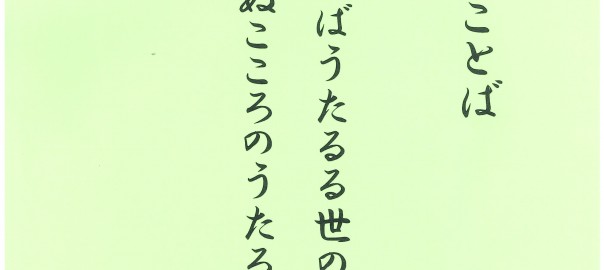 ことば
ばうたるる世の
ぬこころのうたろ